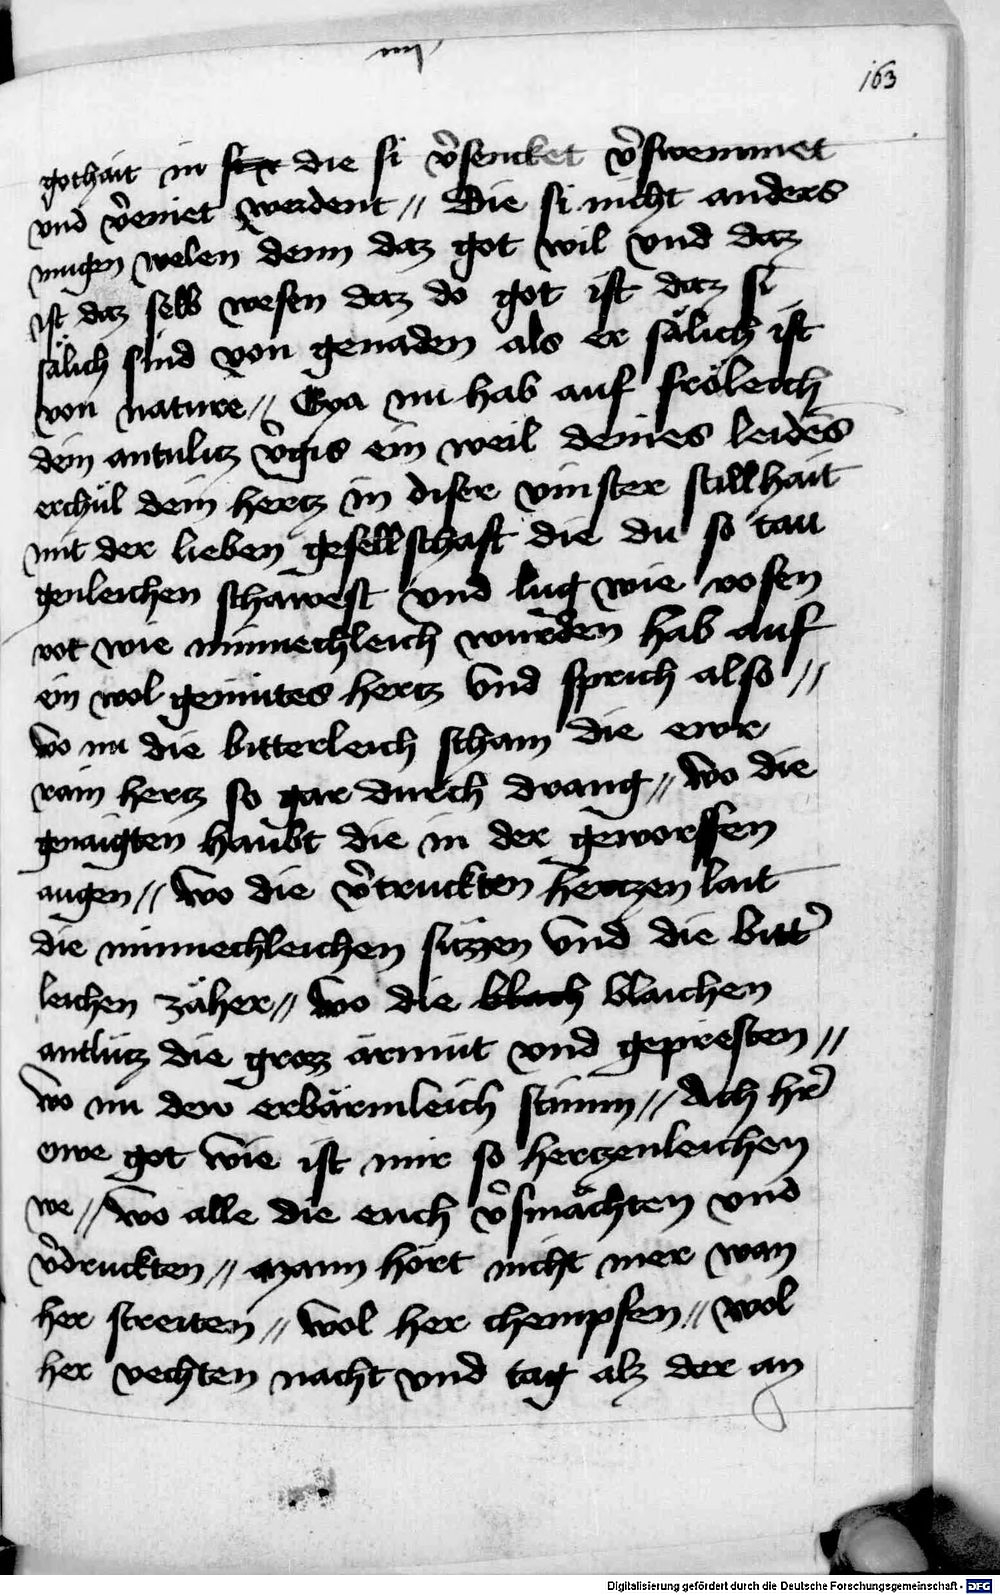 iiij
163
gothait in si̶x̶ die si v̉sencket v̉swemmet
vnd v̉einet werdent // Die si nicht anders
mugen welen denn daz got wil vnd daz
ist daz selb wesen daz do got ist daz si
sälich sind von genaden als er sälich ist
von nature // Eya nu hab auf fröleich
dein antulitz v̉gis ein weil deines leides
erchül dein hertz in diser vinster stillhait
mit der lieben gesellschaft die du so tau
genleichen schawest vnd lug wie rosen
rot wie minnechleich wurden hab auf
ein wol gemutes hertz vnd sprich also //
wo nu die bitterleich scham die ewr
rain hertz so gar durch drang // wo die
genaigten haubt die in der geworffen
augen // wo die v̉truckten hertzen lait
die minnechleichen sitzzen vnd die bitt̉
leichen zäher // wo die b̶l̶a̶c̶h̶ blaichen
antlütz die grozz armut vnd gepresten //
wo nu dew erbärmleich stimm // Ach hr̉
owe got wie ist mir so hertzenleichen
we // wo alle die euch v̉smächten vnd
v̉druckten // Mann hört nicht mer wan
her streiten // wol her chempfen // wol
her vechten nacht vnd tag alz der an
Digitalisierung gefördert durch die Deutsche Forschungsgemeinschaft - DFG